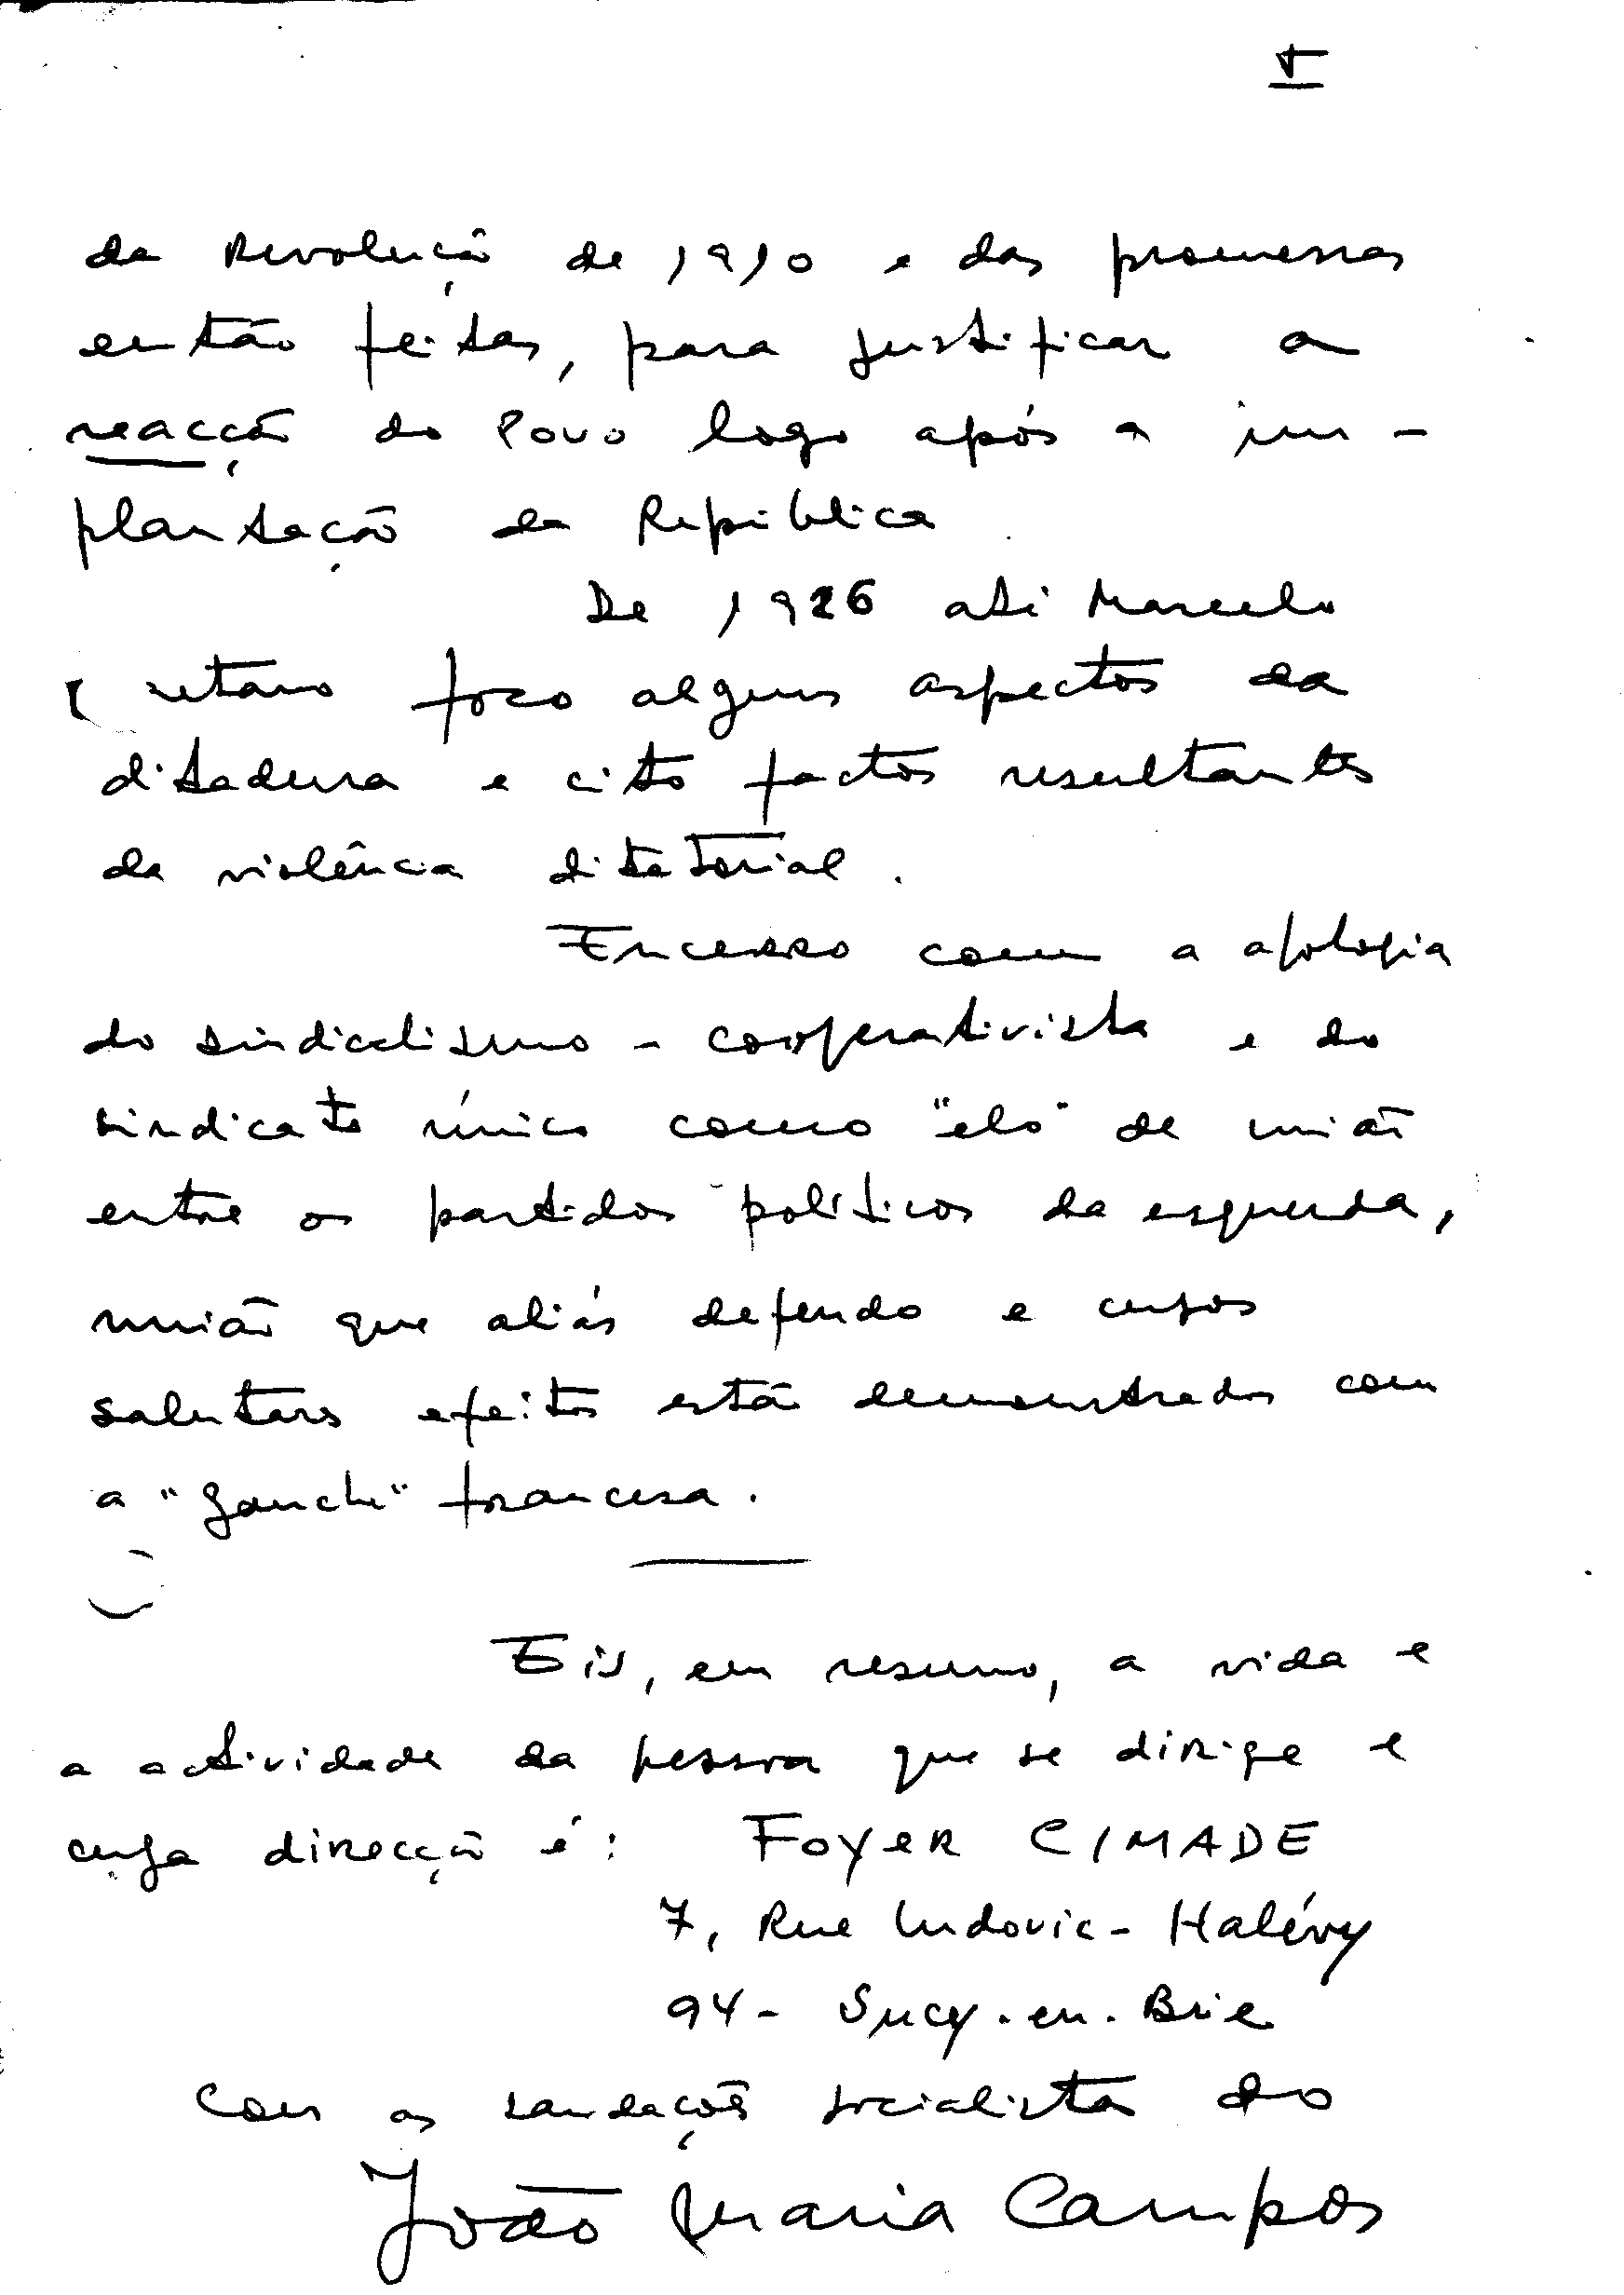 V
da Revolução de 1910 e das promessas
então feitas, para justificar a
reacção do Povo logo após a im-
plantação da República
De 1926 até Marcelo
Cetano foco alguns aspectos da
ditadura e cito factos resultantes
da violência ditatorial.
Encerro com a apologia
do sindicalismo - cooperativista e do
sindicato único como "elo" de união
entre os partidos políticos da esquerda,
união que aliás defendo e cujos
salutares efeitos estão demonstrados com
a "gauche" francesa.
Eis, em resumo, a vida e
a actividade da pessoa que se dirige e
cuja direcção é: FOYER CIMADE
7, Rue Ludovic - Halévy
94 - Sucy.en.Brie
Com as saudações socialistas do
João Maria Campos